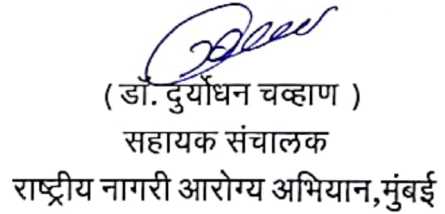 ( डॉ. दुर्योधन चव्हाण )
सहायक संचालक
राष्ट्रीय नागरी आरोग्य अभियान,मुंबई